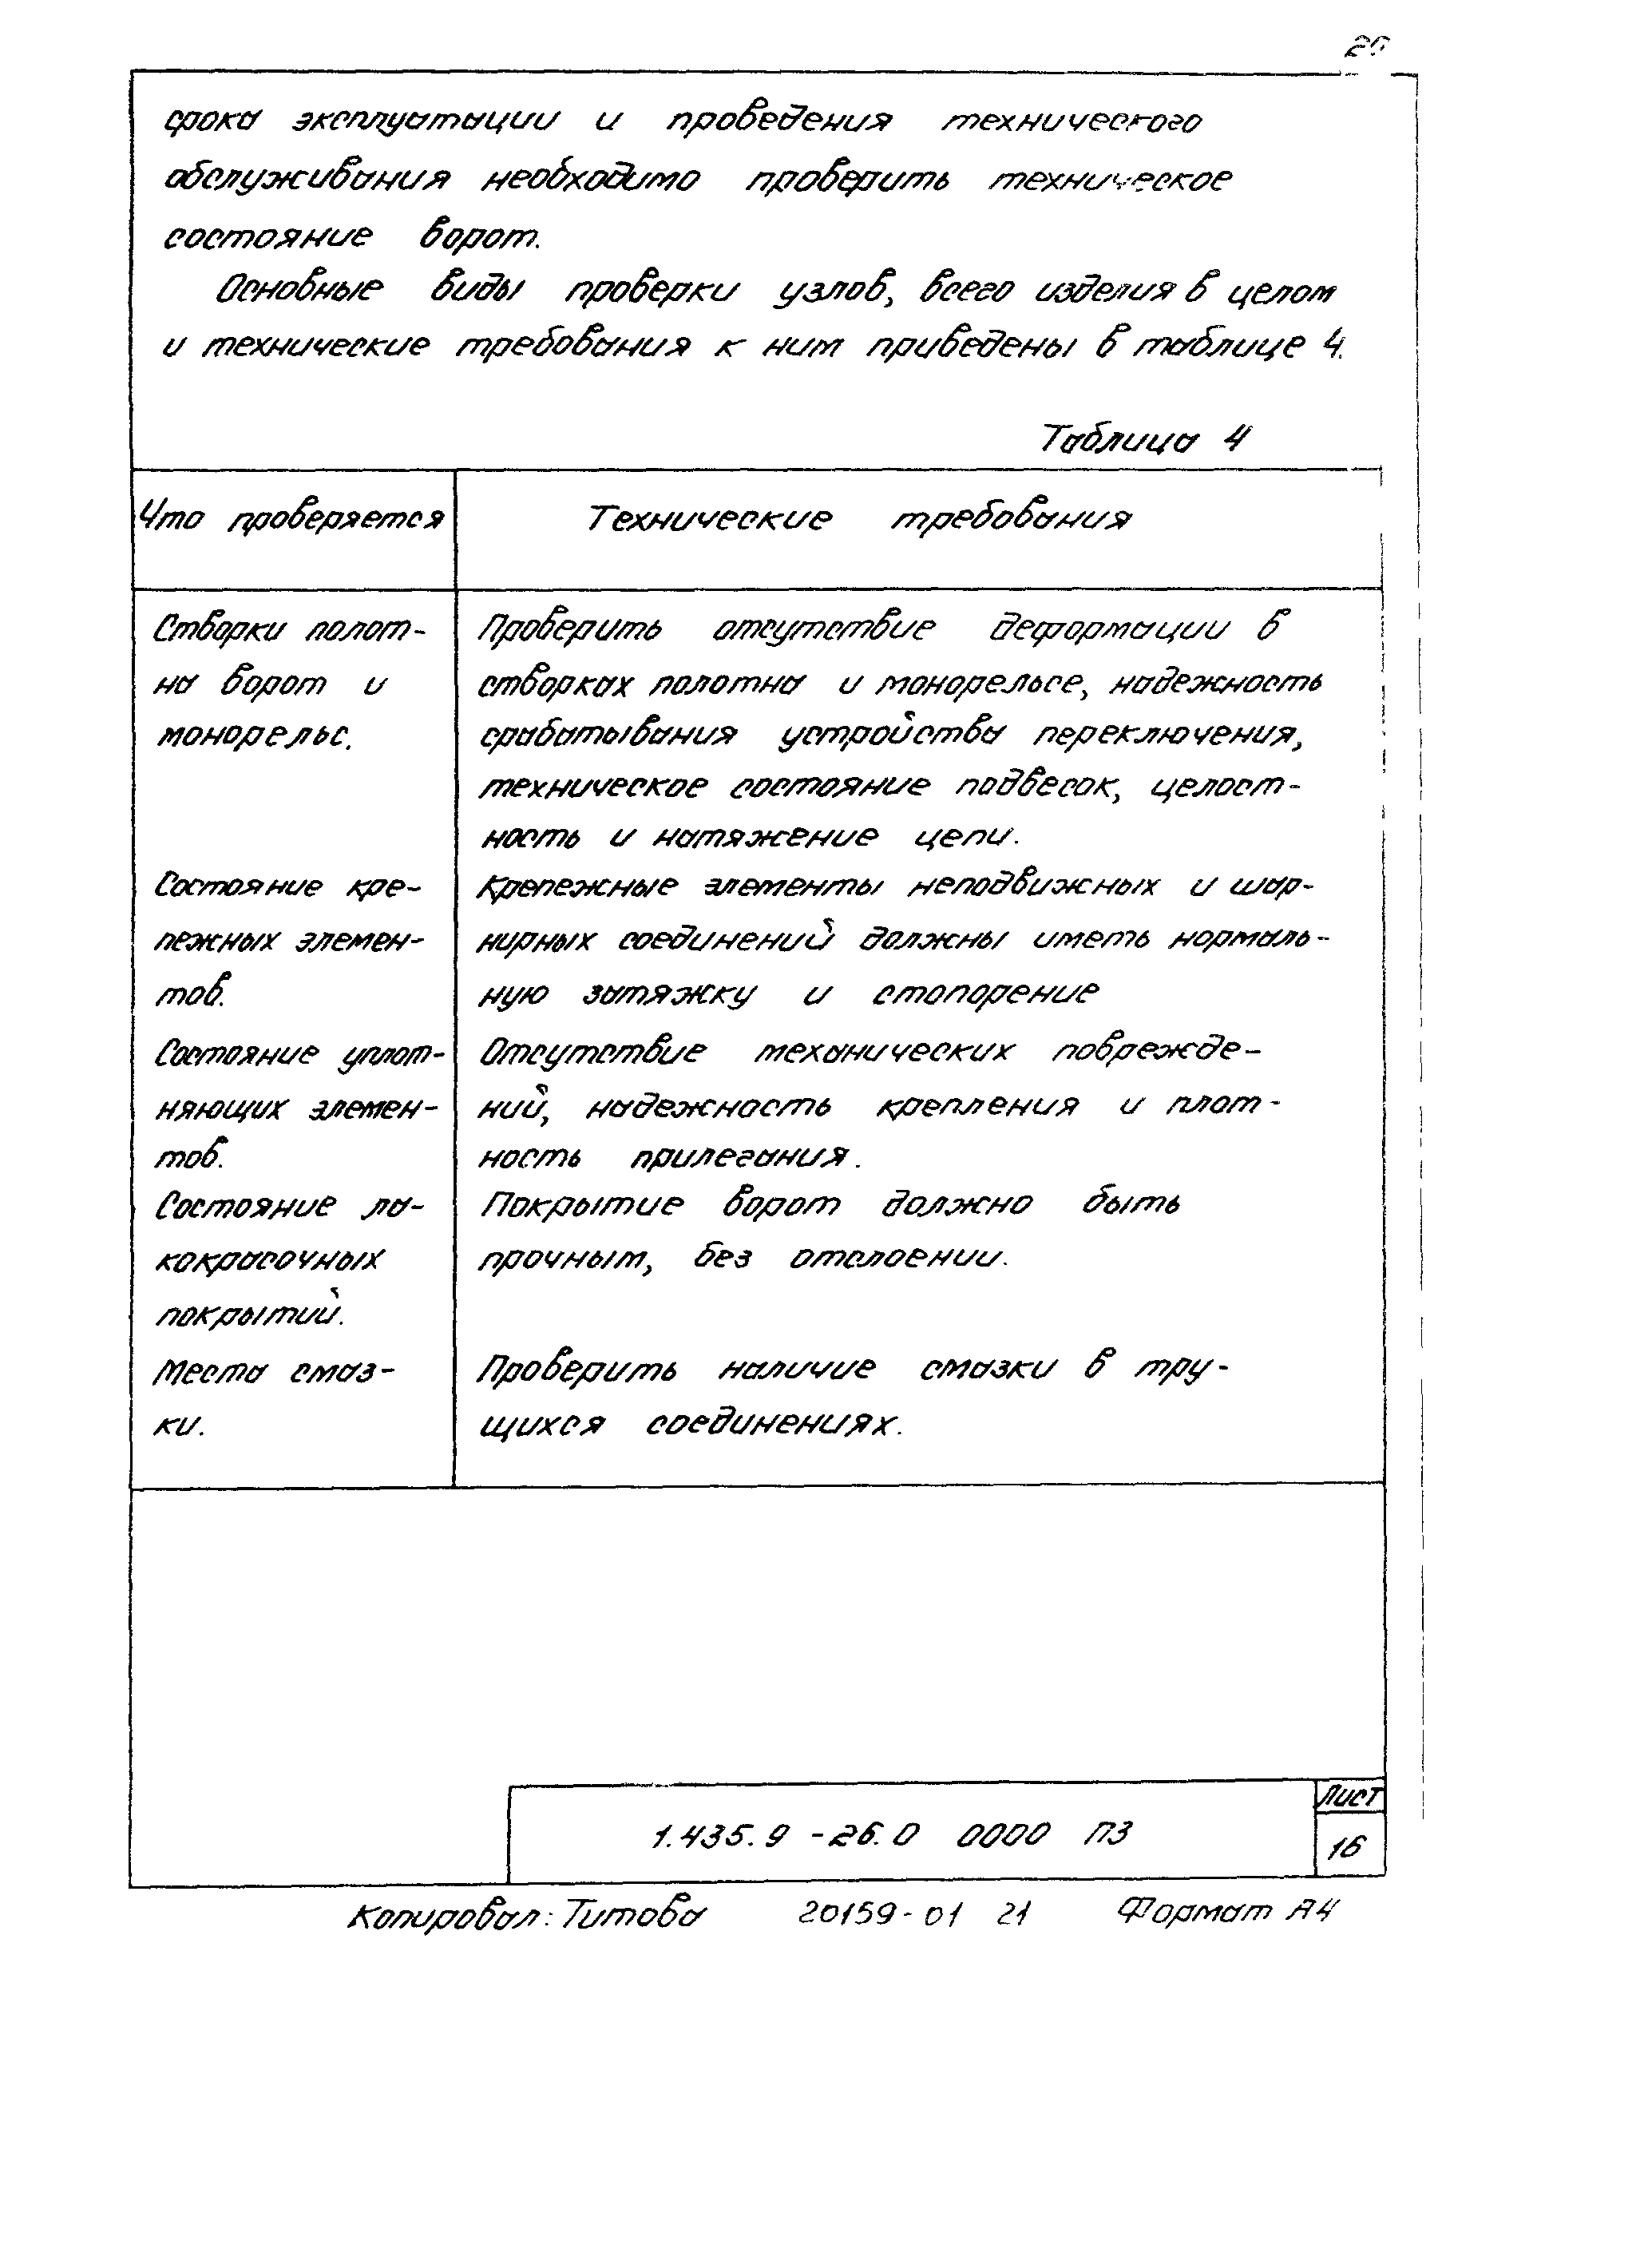 срока эксплуатации и проведения технического
обслуживания необходимо проверить техническое
состояние ворот.
Основные виды проверки узлов, всего изделия в целом
и технические требования к ним приведены в таблице 4.
Таблица 4
Что проверяется
Технические требования
Створки полот-
на ворот и
монорельс.
Проверить отсутствие деформации в
створках полотна и монорельсе, надежность
срабатывания устройства переключения,
техническое состояние подвесок, целост-
ность и натяжение цепи.
Состояние кре-
пежных элемен-
тов.
Крепежные элементы неподвижных и шар-
нирных соединений должны иметь нормаль-
ную затяжку и стопорение
Состояние уплот-
няющих элемен-
тов.
Отсутствие механических поврежде-
ний, надежность крепления и плот-
ность прилегания.
Состояние ла-
кокрасочных
покрытий.
Покрытие ворот должно быть
прочным, без отслоении.
Места смаз-
ки.
Проверить наличие смазки в тру-
щихся соединениях.
1.435.9 -26.0 0000 ПЗ
Лист
16
Копировал: Титова 20159-01 21 Формат А4